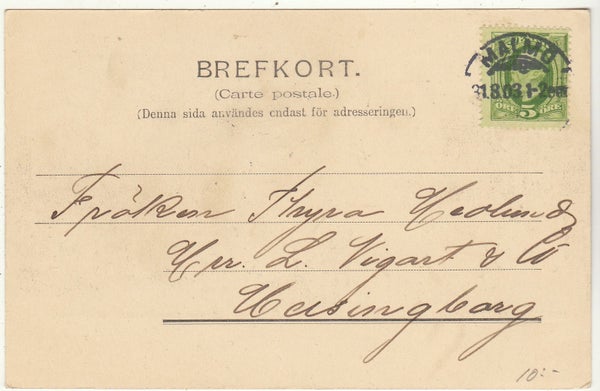 BREFKORT.
(Carte postale.)
(Denna sida användes endast för adresseringen.)
MALMÖ
31.8.03 1-2
ÖRE 5 ÖRE
Fröken Thyra Hedlund
Hrr. L. Vigart & Co
Helsingborg
10:-